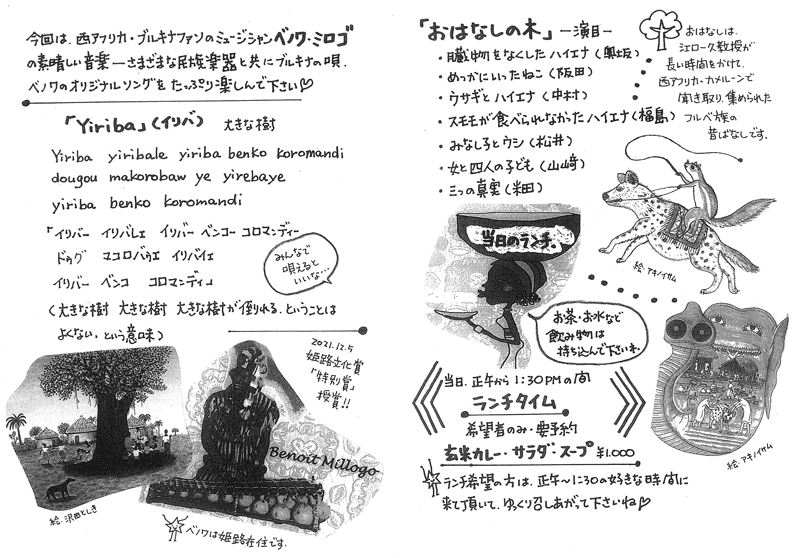 今回は、西アフリカ・ブルキナファソのミュージシャンベノワ・ミロゴ
の素晴しい音楽―さまざまな民族楽器と共にブルキナの唄、
ベノワのオリジナルソングをたっぷり楽しんで下さい♡
「Yiriba」(イリバ) 大きな樹
Yiriba yiribale yiriba benko koromandi
dougou makorobaw ye yirebaye
yiriba benko koromandi
「イリバー イリバレェ イリバー ベンコー コロマンディー
ドゥグ マコロバウェ イリバイェ
イリバー ベンコ コロマンディ」
(大きな樹 大きな樹 大きな樹が倒れる、ということは
よくない、という意味)
みんなで
唄えると
いいな…
2021.12.5
姫路文化賞
「特別賞」
授賞!!
Benoit Millogo
絵・沢田としき
ベノワは姫路在住です。
「おはなしの木」―演目―
・臓物をなくしたハイエナ(奥坂)
・めっかにいったねこ(阪田)
・ウサギとハイエナ(中村)
・スモモが食べられなかったハイエナ(福島)
・みなし子とウシ(松井)
・女と四人の子ども(山﨑)
・三つの真実(米田)
おはなしは、
江口一久教授が
長い時間をかけて、
西アフリカ・カメルーンで
聞き取り、集められた
フルベ族の
昔ばなしです。
絵・アキノイサム
当日のランチ。
お茶・お水など
飲み物は
持ち込んで下さいネ。
当日、正午から1:30PMの間
ランチタイム
希望者のみ・要予約
玄米カレー・サラダ・スープ ¥1,000
絵・アキノイサム
ランチ希望の方は、正午〜1:30の好きな時間に
来て頂いて、ゆっくり召しあがって下さいね♡